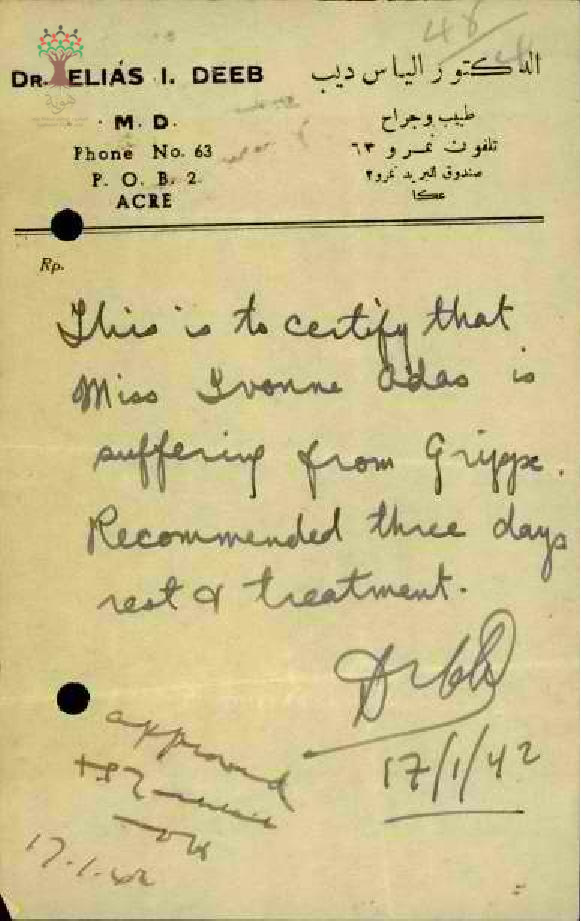 48
DR. ELIAS I. DEEB
الدكتور الياس ديب
M. D.
طبيب وجراح
Phone No. 63
تلفون نمرو ٦٣
P. O. B. 2.
صندوق البريد نمرو ٢
ACRE
عكا
Rp.
This is to certify that
Miss Ivonne Adas is
suffering from Grippe.
Recommended three days
rest & treatment.
17/1/42
approved
17.1.42